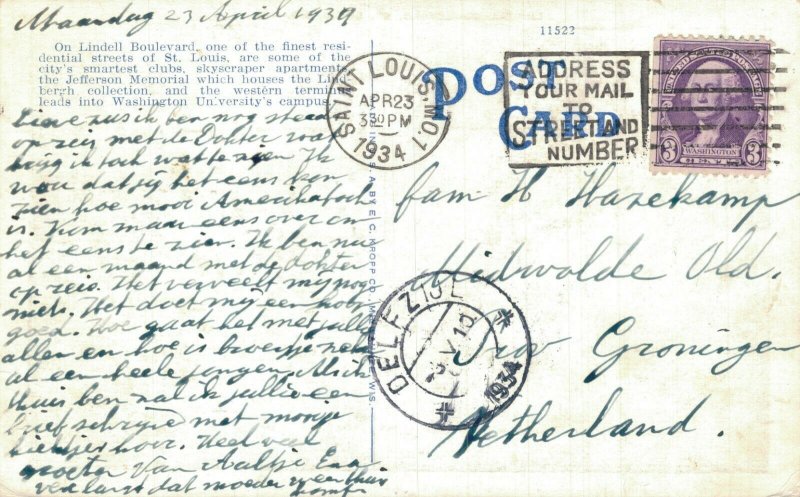 Maandag 23 April 1934
11522
On Lindell Boulevard, one of the finest resi-
dential streets of St. Louis, are some of the
city's smartest clubs, skyscraper apartments,
the Jefferson Memorial which houses the Lind-
bergh collection, and the western terminal
leads into Washington University's campus.
POST
CARD
SAINT LOUIS, MO. 1
APR 23
3 30 PM
1934
ADDRESS
YOUR MAIL
TO
STREET AND
NUMBER
UNITED STATES POSTAGE
WASHINGTON
3 3
Lieve zus ik ben nog steeds
op reis met de Dokter
krijg ik toch wat te zien. Ik
wou dat jij het eens kon
zien hoe mooi Amerika toch
is. Kom maar eens over om
het eens te zien. Ik ben nu
al een maand met de Dokter
op reis. Het verveelt mij nog
niets. Het doet mij een hoop
goed. Hoe gaat het met jullie
allen en hoe is broertje
al een heele jongen. Als ik
thuis ben zal ik jullie een
brief schrijven met mooije
hoor. Heel veel
groeten Van Aaltje En
verlangt dat moeder weer thuis
komt
fam H Hazekamp
Midwolde Old.
Prov Groningen
Netherland.
DELFZIJL
1934
E. C. KROPP CO., MILWAUKEE, WIS.